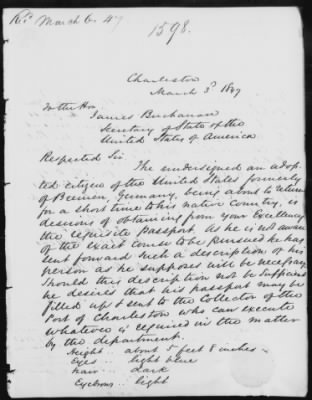 Rec. March 6. 47
1598.
Charleston
March 3d 1847
To the Hon
James Buchanan
Secretary of State of the
United States of America
Respected Sir
The undersigned an adop-
ted citizen of the United States formerly
of Bremen, Germany, being about to return
for a short time to his native country, is
desirous of obtaining from your Excellency
the requisite passport. As he is not aware
of the exact course to be pursued he has
sent forward such a description of his
person as he supposes will be necessary
Should this description not be sufficient
he desires that his passport may be
filled up & sent to the Collector of the
Port of Charleston who can execute
whatever is required in the matter
by the department.
Height.. about 5 feet 8 inches
Eyes ... light blue
hair ... dark
Eyebrows .. light